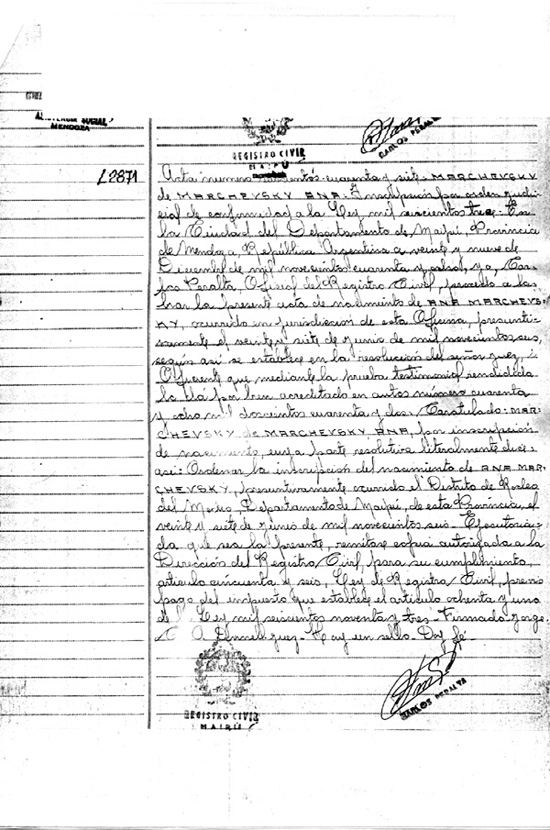 ASISTENCIA SOCIAL
MENDOZA
REGISTRO CIVIL
MAIPU
CARLOS PERALTA
L2871
Acta número cuarenta y siete MARCHEVSKY
de MARCHEVSKY ANA. Inscripción por orden judi-
cial de conformidad a la Ley mil seiscientos tres. En
la Ciudad del Departamento de Maipú, Provincia
de Mendoza, República Argentina a veinte y nueve de
Diciembre de mil novecientos cuarenta y yo, Car-
los Peralta, Oficial del Registro Civil, procedo a la-
brar la presente acta de nacimiento de ANA MARCHEVS-
KY, ocurrido en jurisdicción de esta Oficina, presunti-
vamente el veinte y siete de junio de mil novecientos seis,
según así se establece en la resolución del señor juez,
que mediante la prueba testimonial rendida
la da por bien acreditado en autos número cuarenta
y ocho mil doscientos cuarenta y dos. Caratulado: MAR-
CHEVSKY de MARCHEVSKY ANA, por inscripción
de nacimiento, cuya parte resolutiva literalmente dice
así: Ordenar la inscripción del nacimiento de ANA MAR-
CHEVSKY, presuntivamente ocurrido el Distrito de Rodeo
del Medio, Departamento de Maipú, de esta Provincia, el
veinte y siete de junio de mil novecientos seis. Ejecutoria-
da que sea la presente, remítase copia autorizada a la
Dirección del Registro Civil, para su cumplimiento,
artículo cincuenta y seis, Ley de Registro Civil, previo
pago del impuesto que establece el artículo ochenta y uno
de la Ley mil seiscientos noventa y tres. Firmado: Jorge
A juez. Hay un sello. Doy fé.
REGISTRO CIVIL
MAIPU
CARLOS PERALTA